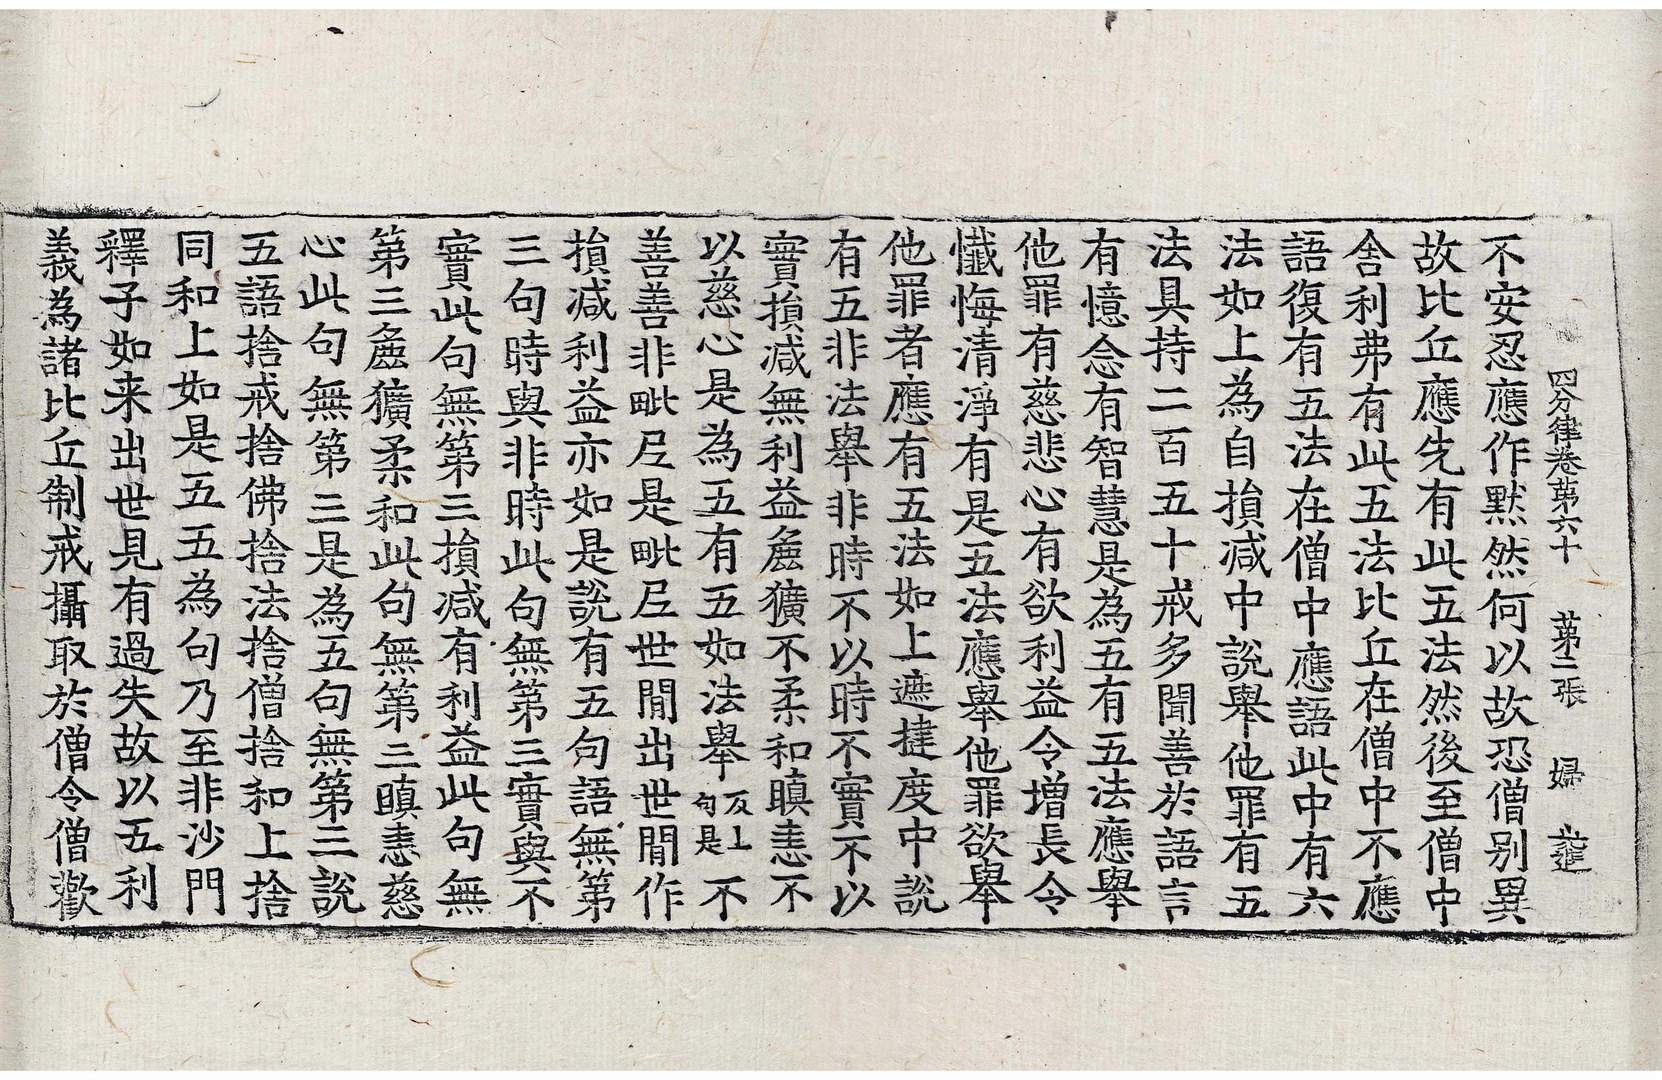 四分律卷第六十 第二張 婦
不安忍應作默然何以故恐僧別異
故比丘應先有此五法然後至僧中
舍利弗有此五法比丘在僧中不應
語復有五法在僧中應語此中有六
法如上為自損減中說舉他罪有五
法具持二百五十戒多聞善於語言
有憶念有智慧是為五有五法應舉
他罪有慈悲心有欲利益令增長令
懺悔清淨有是五法應舉他罪欲舉
他罪者應有五法如上遮揵度中說
有五非法舉非時不以時不實不以
實損減無利益麁獷不柔和瞋恚不
以慈心是為五有五如法舉反上句是不
善善非毗尼是毗尼世間出世間作
損減利益亦如是說有五句語無第
三句時與非時此句無第三實與不
實此句無第三損減有利益此句無
第三麁獷柔和此句無第三瞋恚慈
心此句無第三是為五句無第三說
五語捨戒捨佛捨法捨僧捨和上捨
同和上如是五五為句乃至非沙門
釋子如来出世見有過失故以五利
義為諸比丘制戒攝取於僧令僧歡